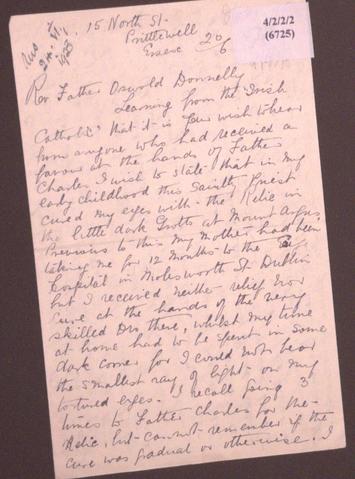 4/2/2/2
(6725)
15 North St.
Prittlewell
Essex 20/6
Rev Father Oswald Donnelly
Learning from the "Irish
Catholic" that it is your wish to hear
from anyone who had received a
favour at the hands of Father
Charles I wish to state that in my
early childhood this Saintly Priest
cured my eyes with the Relic in
the little dark Grotto at Mount Argus,
Previous to this my Mother had been
taking me for 12 months to the Eye
Hospital in Molesworth St. Dublin
but I received neither relief nor
cure at the hands of the very
skilled Drs there, whilst my time
at home had to be spent in some
dark corner for I could not bear
the smallest ray of light on my
tortured eyes. I recall going 3
times to Father Charles for the
Relic, but cannot remember if the
cure was gradual or otherwise. I